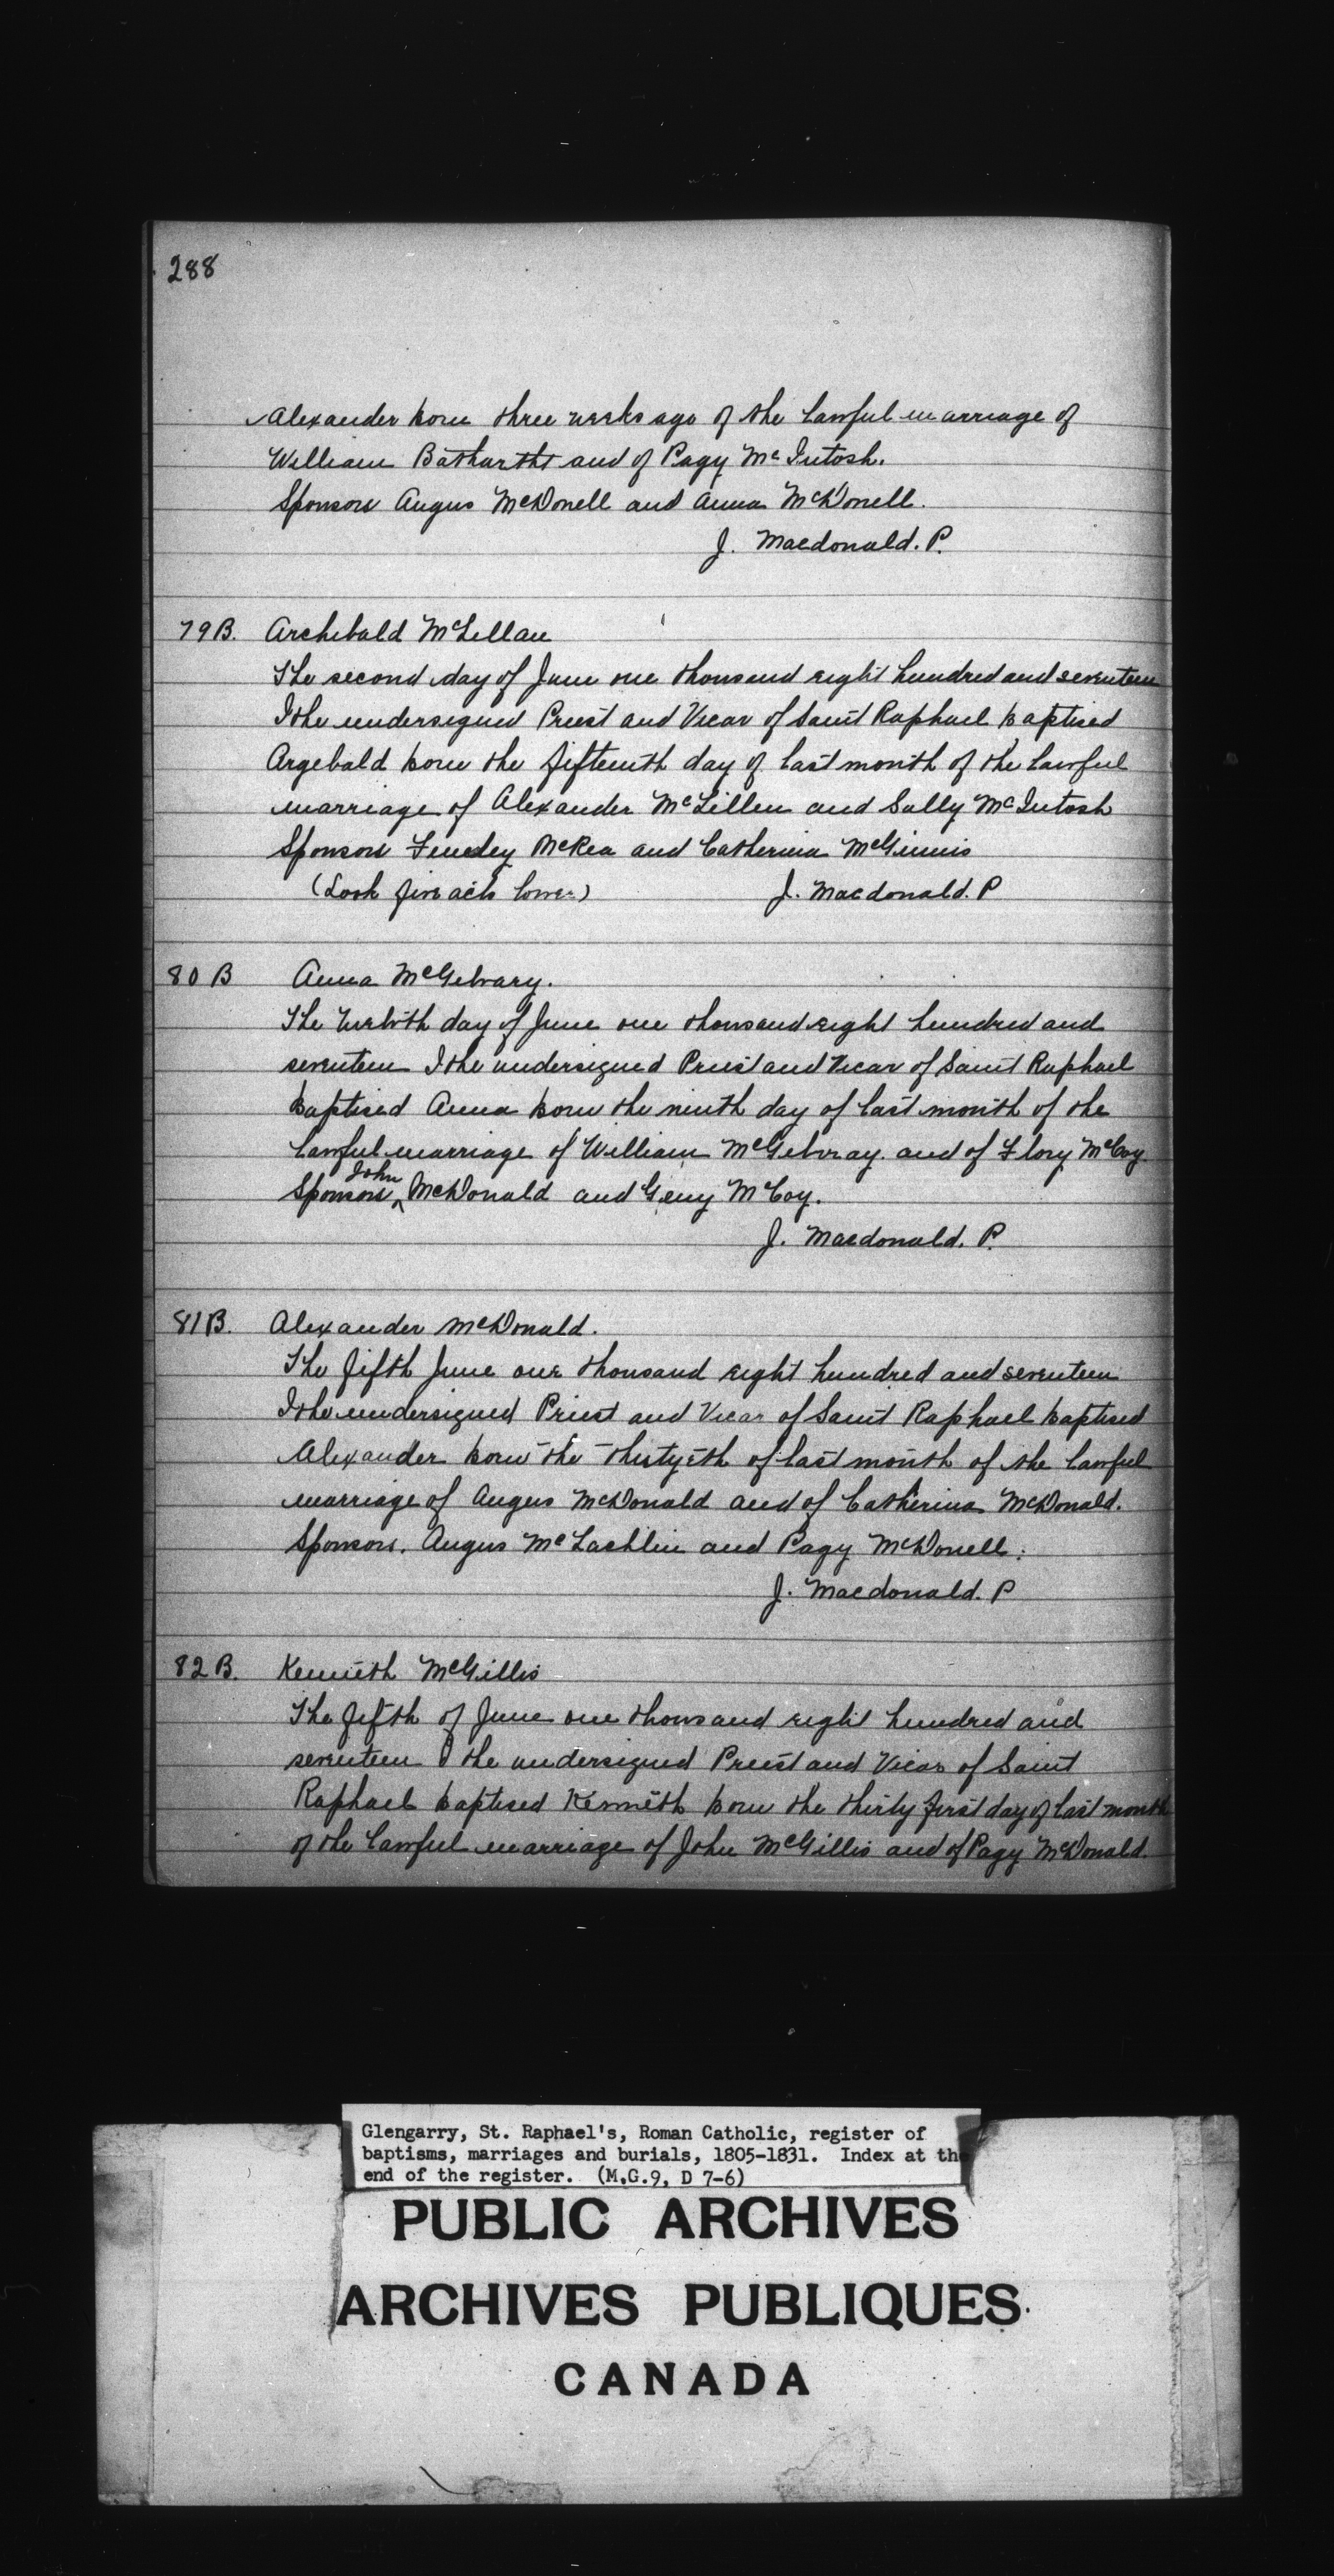 288
Alexander born three weeks ago of the lawful marriage of
William Bathurtht and of Pagy McIntosh.
Sponsors Angus McDonell and Anna McDonell.
J. Macdonald. P.
79B. Archibald McLellan
The second day of June one thousand eight hundred and seventeen
I the undersigned Priest and Vicar of Saint Raphael baptised
Argebald born the fifteenth day of last month of the lawful
marriage of Alexander McLillen and Sally McIntosh
Sponsors Finedey McRea and Catherina McGinnis
(Look five acts lower) J. Macdonald. P
80 B Anna McGelvary.
The twelvth day of June one thousand eight hundred and
seventeen I the undersigned Priest and Vicar of Saint Raphael
baptised Anna born the ninth day of last month of the
lawful marriage of William McGelvray and of Flory McCoy
Sponsors John McDonald and Geny McCoy.
J. Macdonald. P.
81B. Alexander McDonald.
The fifth June one thousand eight hundred and seventeen
I the undersigned Priest and Vicar of Saint Raphael baptised
Alexander born the thirtyeth of last month of the lawful
marriage of Angus McDonald and of Catherina McDonald.
Sponsors. Angus McLachlin and Pagy McDonell.
J. Macdonald. P
82B. Kenneth McGillis
The fifth of June one thousand eight hundred and
seventeen I the undersigned Priest and Vicar of Saint
Raphael baptised Kenneth born the thirty first day of last month
of the lawful marriage of John McGillis and of Pagy McDonald.
Glengarry, St. Raphael's, Roman Catholic, register of
baptisms, marriages and burials, 1805-1831. Index at the
end of the register. (M.G.9, D 7-6)
PUBLIC ARCHIVES
ARCHIVES PUBLIQUES
CANADA